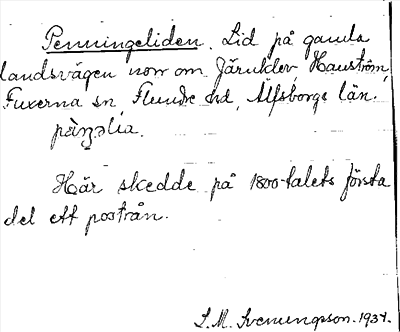 Penningeliden. Lid på gamla
landsvägen norr om Järnklev, Hauström,
Fuxerna sn, Flundre hd, Älfsborgs län.
pæ̀ŋəlia.
Här skedde på 1800-talets första
del ett postrån.
S. M. Svenungsson. 1937.